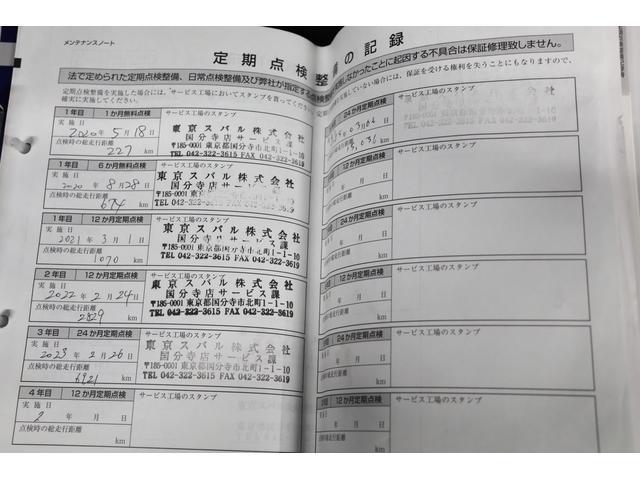 メンテナンスノート
定期点検整
法で定められた定期点検整備、日常点検整備及び弊社が指定する
定期点検整備を実施した場合には、サービス工場においてスタンプを貰ってく
確実に実施してください。
1年目 1か月無料点検 サービス工場のスタンプ
実施日 2020年5月18日
点検時の総走行距離 227 km
東京スバル株式会社
国分寺店サービス課
〒185-0001 東京都国分寺市北町1-1-10
TEL 042-322-3615 FAX 042-322-3619
1年目 6か月無料点検 サービス工場のスタンプ
実施日 2020年8月28日
点検時の総走行距離 674 km
東京スバル株式会社
国分寺店サービス課
〒185-0001 東京都国分寺市北町1-1-10
TEL 042-322-3615 FAX 042-322-3619
1年目 12か月定期点検 サービス工場のスタンプ
実施日 2021年3月1日
点検時の総走行距離 1070 km
東京スバル株式会社
国分寺店サービス課
〒185-0001 東京都国分寺市北町1-1-10
TEL 042-322-3615 FAX 042-322-3619
2年目 12か月定期点検 サービス工場のスタンプ
実施日 2022年2月24日
点検時の総走行距離 2829 km
東京スバル株式会社
国分寺店サービス課
〒185-0001 東京都国分寺市北町1-1-10
TEL 042-322-3615 FAX 042-322-3619
3年目 24か月定期点検 サービス工場のスタンプ
実施日 2023年2月26日
点検時の総走行距離 6921 km
東京スバル株式会社
国分寺店サービス課
〒185-0001 東京都国分寺市北町1-1-10
TEL 042-322-3615 FAX 042-322-3619
4年目 12か月定期点検 サービス工場のスタンプ
実施日 2年 月 日
点検時の総走行距離 km
の記録
しなかったことに起因する不具合は保証修理致しません。
実施していない場合には、保証を受ける権利を失うことにもなりますので、
24か月定期点検 サービス工場のスタンプ
12か月定期点検 サービス工場のスタンプ
24か月定期点検 サービス工場のスタンプ
12か月定期点検 サービス工場のスタンプ
24か月定期点検 サービス工場のスタンプ
12か月定期点検 サービス工場のスタンプ